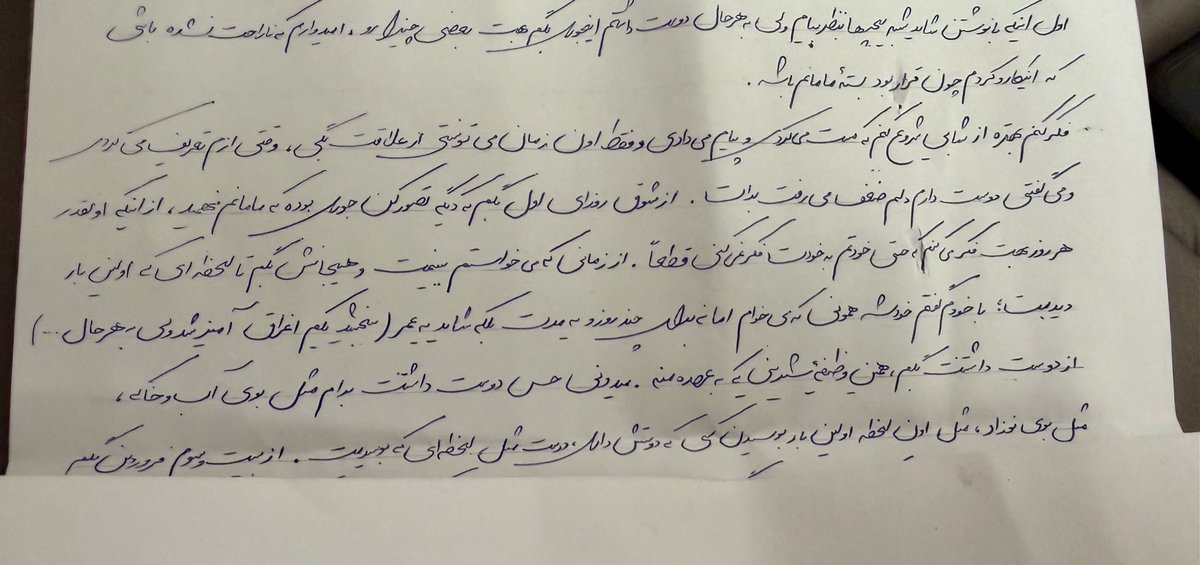 اول اینکه با نوشتن شاید شبیه بچه‌ها بنظر بیام ولی به هر حال دوست داشتم اینجوری بگم بهت بعضی چیزا رو، امیدوارم که ناراحت نشده باشی
که اینکارو کردم چون قرار بود بستهٔ مامانم باشه.
فکر کنم بهتره از شبایی شروع کنم که مست می‌کردی و پیام می‌دادی و فقط اون زمان می تونستی از علاقت بگی، وقتی ازم تعریف می کردی
و می گفتی دوست دارم دلم ضعف می رفت برات. از شوق روزای اول بگم که دیگه تصور کن جوری بوده که مامانم فهمید، از اینکه اونقدر
هر روز بهت فکر می کنم که حتی خودتم به خودت فکر نمی کنی قطعاً. از زمانی که می خواستم ببینمت و هیجانش بگم تا لحظه ای که اولین بار
دیدمت؛ با خودم گفتم خودشه همونی که می خوام اما نه برای چند روز و یه مدت بلکه شاید یه عمر (ببخشید یکم اغراق آمیز شد ولی به هر حال ...)
از دوست داشتنت بگم، همین وظیفهٔ شیرینی که به عهده منه. میدونی حس دوست داشتنت برام مثل بوی آب و خاکه،
مثل بوی نوزاد، مثل اون لحظه اولین بار بوسیدن کسی که دوستش داری، درست مثل لحظه‌ای که بوسیدمت. از بیست و سوم فروردین بگم